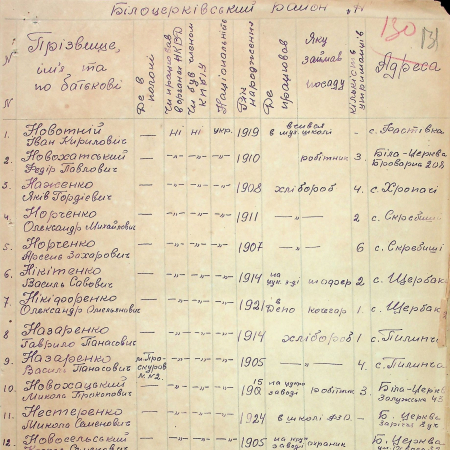 Білоцерківський район
130
№ Прізвище, ім'я та по батькові
Де в полоні
Чи працював в органах НКВД
Чи був членом КП(б)У
Національність
Рік народження
Де працював
Яку займав посаду
Кількість утриманців
Адреса
1. Новотний Іван Кирилович — ні ні укр. 1919 вчився в муз. школі — с. Фастівка
2. Новохатський Федір Павлович — -"- -"- -"- 1910 робітник 3 Біла-Церква Броварна 208
3. Наженко Яків Гордієвич — -"- -"- -"- 1908 хлібороб 4 с. Храпачі
4. Норченко Олександр Михайлович — -"- -"- -"- 1911 —"— 2 с. Скребиші
5. Норченко Арсень Захарович — -"- -"- -"- 1907 —"— 6 с. Скребиші
6. Нікітенко Василь Савович — -"- -"- -"- 1914 на цук. з-ді шофер 2 с. Щербак
7. Нікіфоренко Олександр Омелянович — -"- -"- -"- 1921 в Депо кочегар 1 с. Щербак
8 Назаренко Гаврило Панасович — -"- -"- -"- 1914 хлібороб 1 с. Пилипча
9. Назаренко Василь Панасович м. Проскуров -"- -"- -"- 1905 —"— 4 с. Пилипча
10. Новохацький Микола Прокопович — -"- -"- -"- 190 15 на цукр заводі робітник 3 Біла-Церкв Залузська 45
11. Нестеренко Микола Семенович — -"- -"- -"- 1924 в школі ФЗО — Б. Церква
12. Новосельський — -"- -"- -"- 1905 на цук заводі охраник Б. Церква